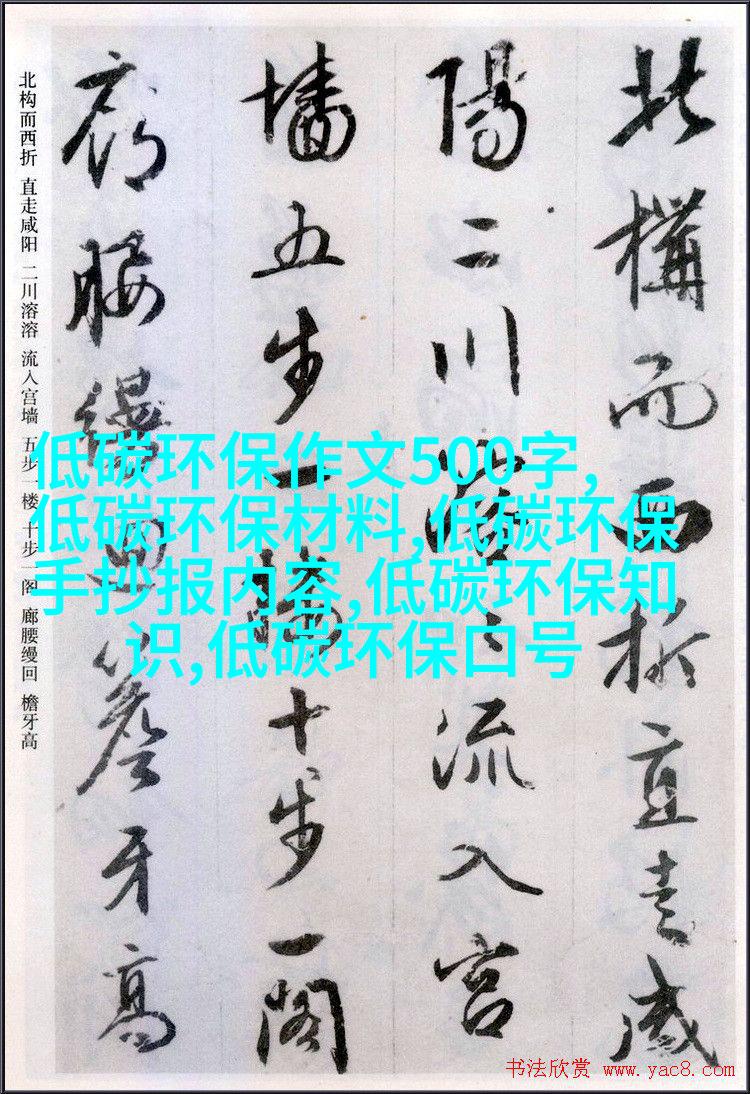 北構而西折直走咸
陽二川溶々流入宮
墻五步一樓十步一閣
廊腰縵迴簷牙高
北构而西折 直走咸阳 二川溶溶 流入宫墙 五步一楼 十步一阁 廊腰缦回 檐牙高
低碳环保作文500字,
低碳环保材料,低碳环保
手抄报内容,低碳环保知
识,低碳环保口号
书法欣赏 www.yac8.com